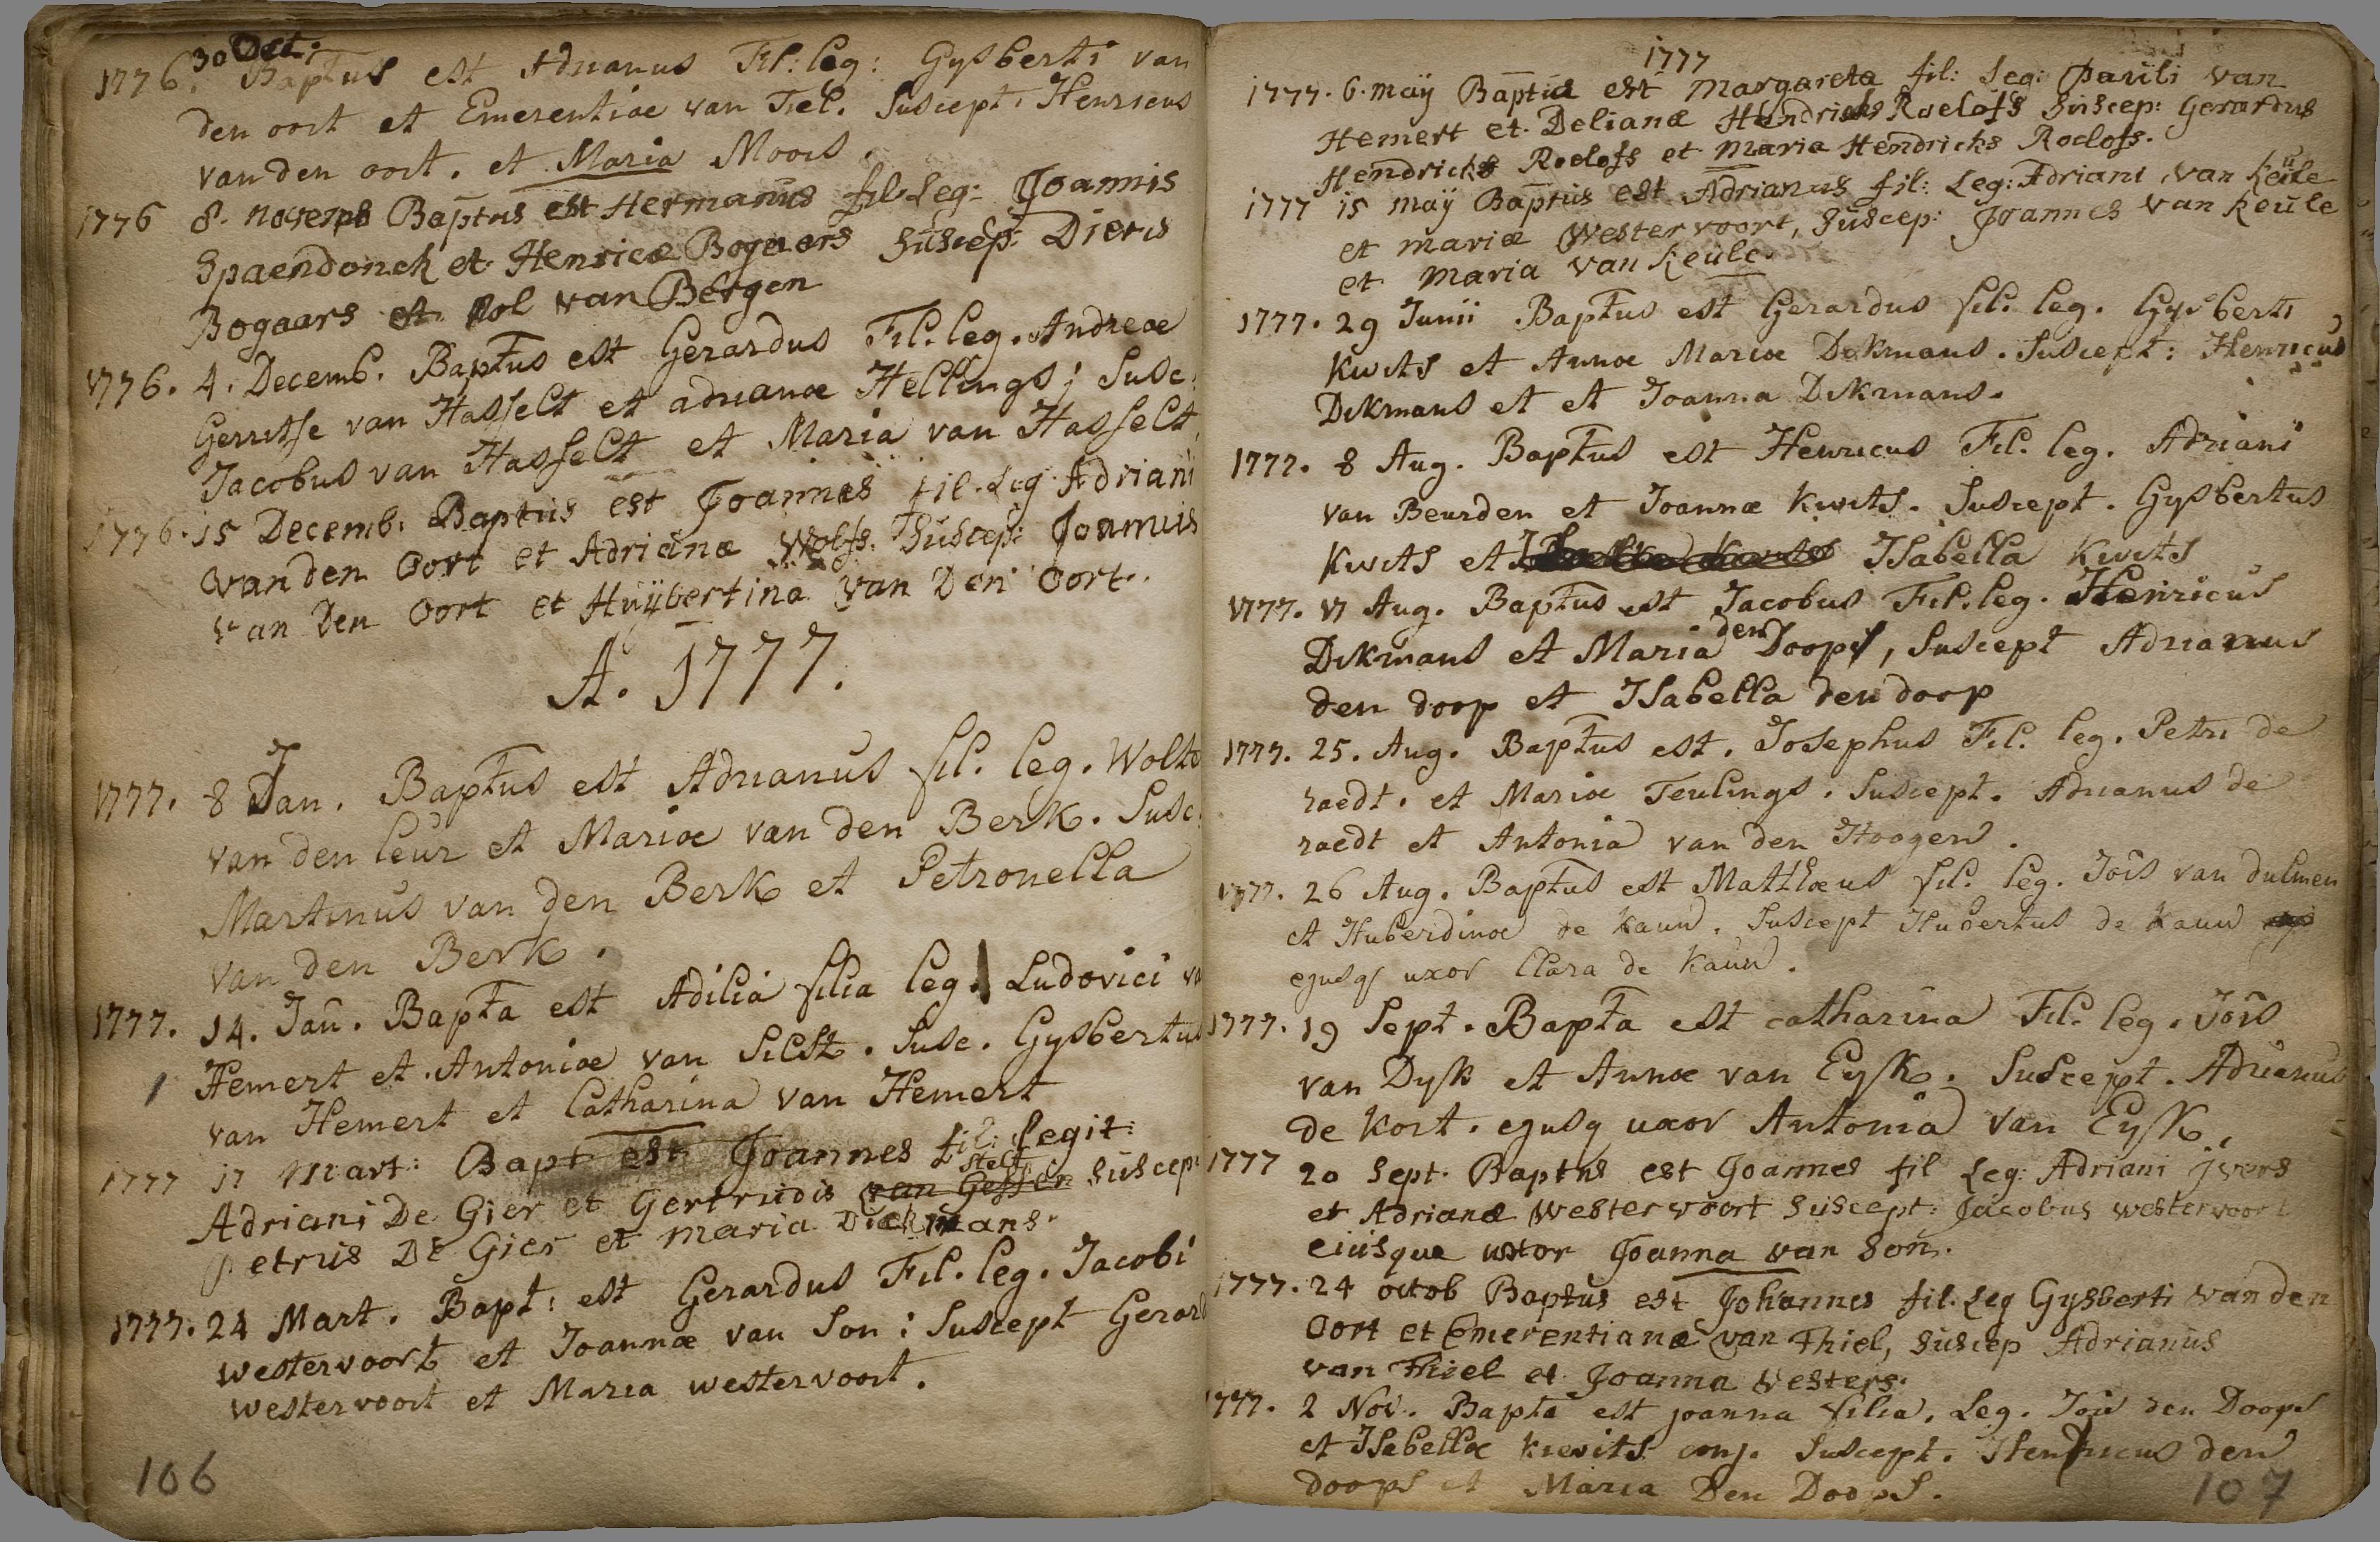 30 Oct:
1776. Baptus est Adrianus Fil: leg: Gysberti van
den oort et Emerentiae van Tiel. Suscept. Henricus
van den oort. et Maria Moors.
1776 8. novemb Baptus est Hermanus fil. Leg: Joannis
Spaendonck et Henricæ Bogaers Suscep: Dieris
Bogaars et Pol van Bergen
1776. 4. Decemb. Baptus est Gerardus Fil. leg. Andreae
Gerritse van Hasselt et adrianae Hellings; Susc:
Jacobus van Hasselt et Maria van Hasselt
1776. 15 Decemb. Baptus est Joannes fil. Leg Adriani
van den Oort et Adrianæ Wolfs. Suscep: Joannis
van Den Oort et Huijbertina van Den Oort.
A. 1777.
1777. 8 Jan. Baptus est Adrianus fil. leg. Wolt
van den leur et Mariae van den Berk. Susc:
Martinus van den Berk et Petronella
van den Berk.
1777. 14. Jan. Bapta est Adilia filia leg. Ludovici v
Hemert et Antoniae van Silst. Susc. Gysbertus
van Hemert et Catharina van Hemert
1777 17 Mart: Bapt est Joannes fil: Legit:
Adriani De Gier et Gertrudis van Gessen Stelt suscep:
petrus De Gier et maria Dickmans.
1777. 24 Mart. Bapt: est Gerardus Fil. leg. Jacobi
westervoort et Joannæ van Son; Suscept Gerard
westervoort et Maria westervoort.
106
1777
1777. 6. maij Baptus est Margareta fil: Leg: Pauli van
Hemert et Delianæ Hendricks Roelofs Suscep: Gerardus
Hendricks Roelofs et Maria Hendricks Roelofs.
1777 15 maij Baptus est Adrianus fil: Leg: Adriani van Keule
et mariæ Westervoort, Suscep: Joannes van Keule
et Maria van Keule.
1777. 29 Junii Baptus est Gerardus fil. leg. Gysberti
Kwits et Annae Mariae Dikmans. Suscept: Henricus
Dikmans et et Joanna Dikmans.
1777. 8 Aug. Baptus est Henricus Fil. leg. Adriani
van Beurden et Joannæ Kwits. Suscept. Gysbertus
Kwits et Isabella Kwits
1777. 17 Aug. Baptus est Jacobus Fil. leg. Henricus
Dikmans et Maria den Doops, Suscept Adrianus
den doop et Isabella den doop
1777. 25. Aug. Baptus est. Josephus Fil. leg. Petri de
raedt. et Mariae Teulings. Suscept. Adrianus de
raedt et Antonia van den Hoogen.
1777. 26 Aug. Baptus est Matthæus fil. leg. Jois van dulmen
et Huberdinae de Kauw. Suscept Hubertus de Kauw
ejusq uxor Clara de Kauw.
1777. 19 Sept. Bapta est catharina Fil. leg. Jois
van Dyk et Annæ van Eyk. Suscept. Adrianus
de Kort. ejusq uxor Antonia van Eyk.
1777 20 Sept. Baptus est Joannes fil Leg: Adriani jvers
et Adrianæ Westervoort Suscept: Jacobus westervoort
eiusque uxor Joanna van Son.
1777. 24 octob Baptus est Johannes fil. Leg Gysberti van den
Oort et Emerentianæ van Thiel, Suscep Adrianus
van Thiel et Joanna Vesters.
1777. 2 Nov. Bapta est joanna filia. Leg. Jois den Doops
et Isabellæ Kievits conj. Suscept. Hendricus den
doops et Maria Den Doops.
107